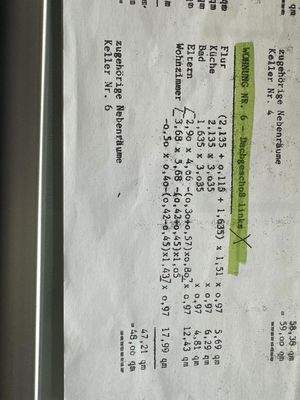 58,38 qm
= 59,00 qm
========
zugehörige Nebenräume
Keller Nr. 4
WOHNUNG NR. 6 - Dachgeschoß links
Flur (2,135 + 0,115 + 1,635) x 1,51 x 0,97 5,69 qm
Küche 2,135 x 3,035 x 0,97 6,29 qm
Bad 1,635 x 3,035 x 0,97 4,81 qm
Eltern [2,90 x 4,66 -(0,30+0,57)x0,80] x 0,97 12,43 qm
Wohnzimmer [3,68 x 5,68 -(0,42+0,45)x1,05
-0,50 x 0,40-(0,42+0,45)x1,43] x 0,97 17,99 qm
47,21 qm
= 48,00 qm
========
zugehörige Nebenräume
Keller Nr. 6